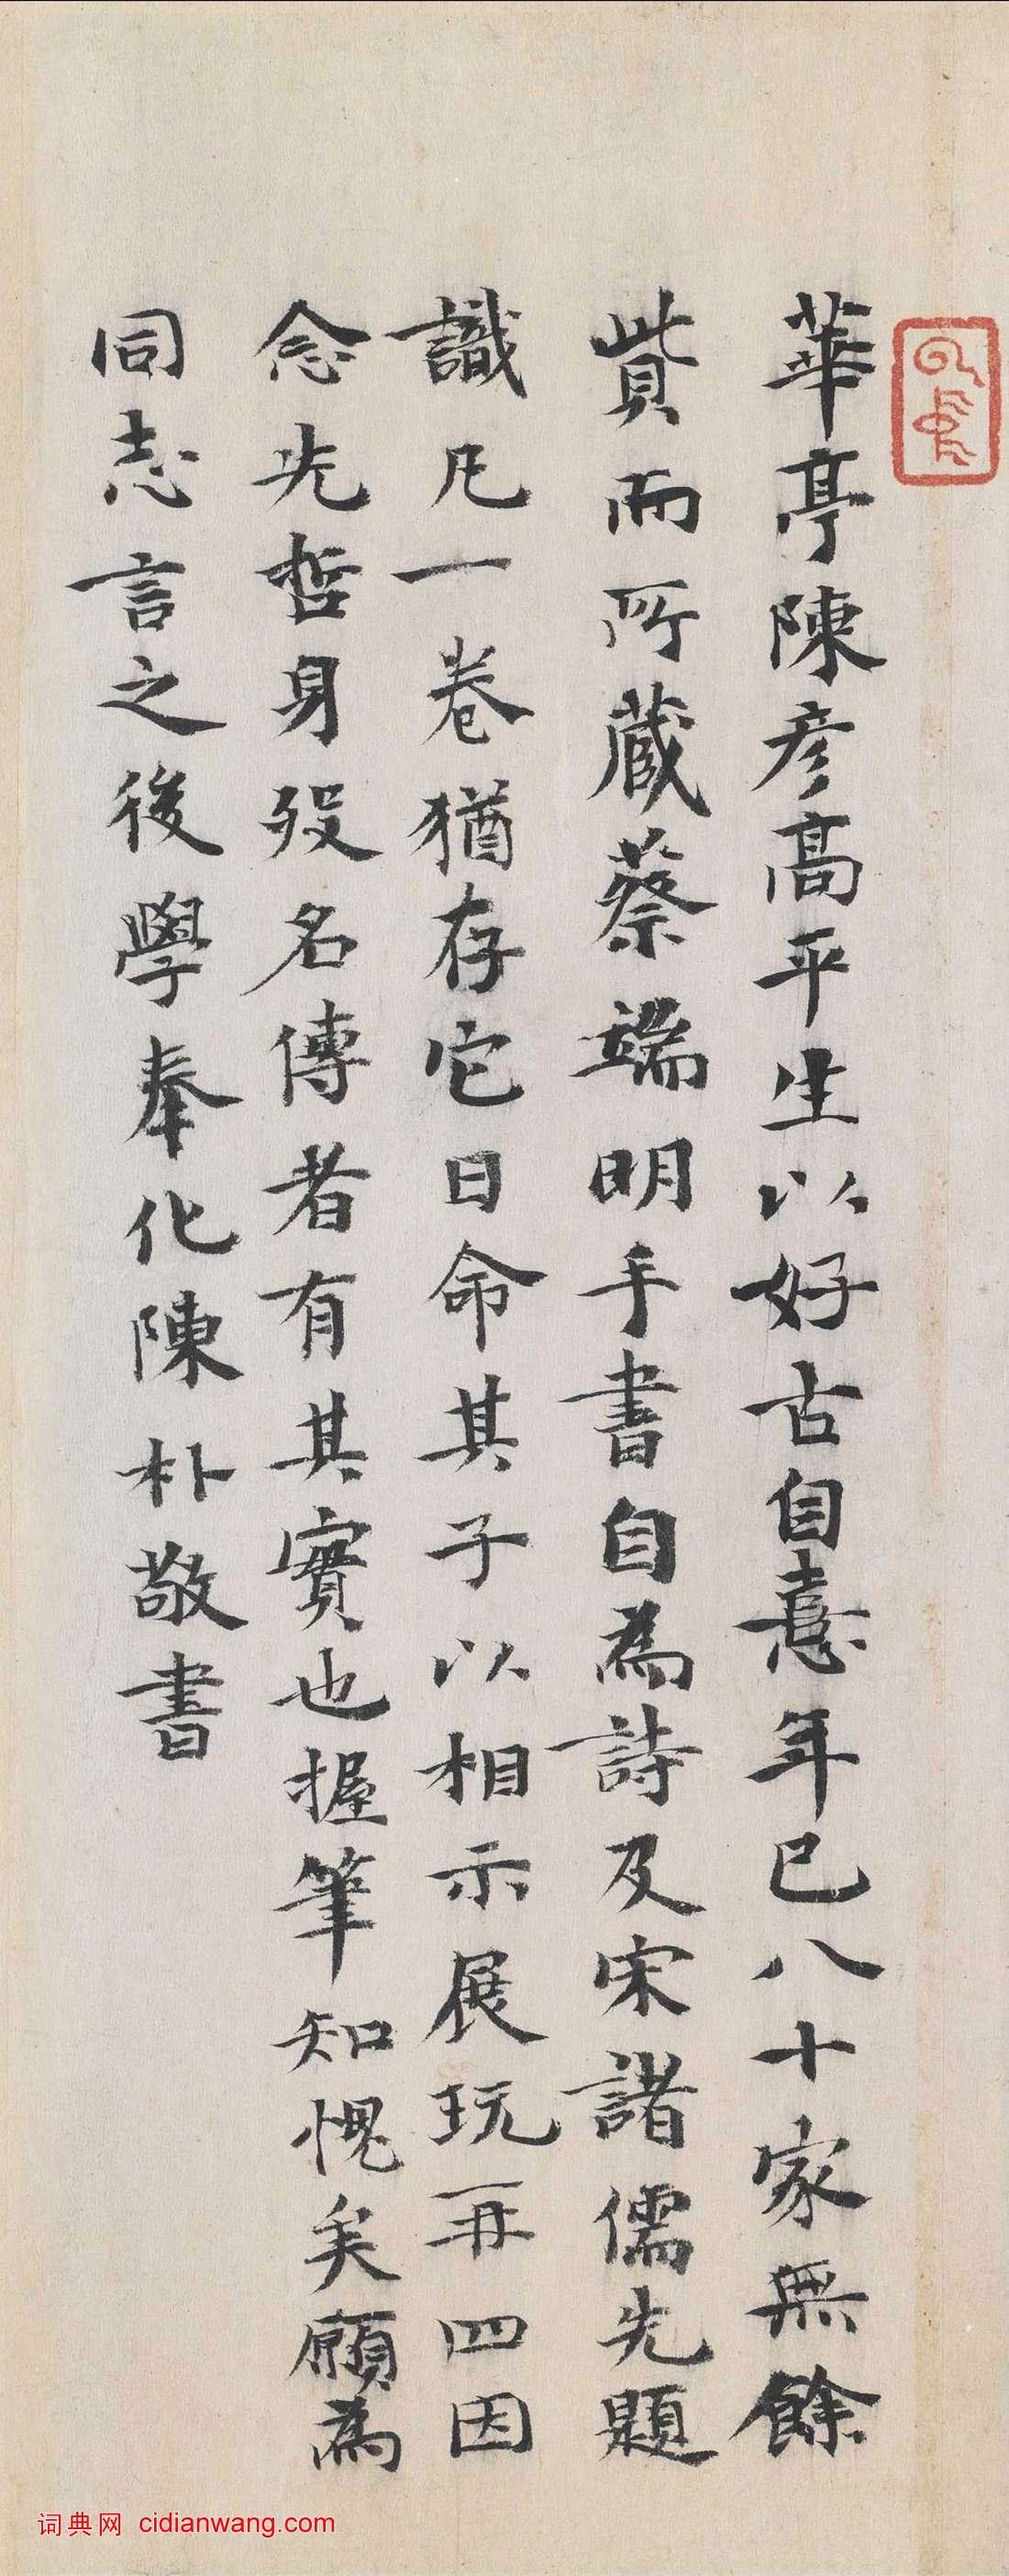 華亭陳彥高平生以好古自憙年已八十家無餘
貲而所蔵蔡端明手書自為詩及宋諸儒先題
識凡一卷猶存它日命其子以相示展玩再四因
念先哲身歿名傳者有其實也握筆知愧矣願為
同志言之後學奉化陳朴敬書
词典网 cidianwang.com